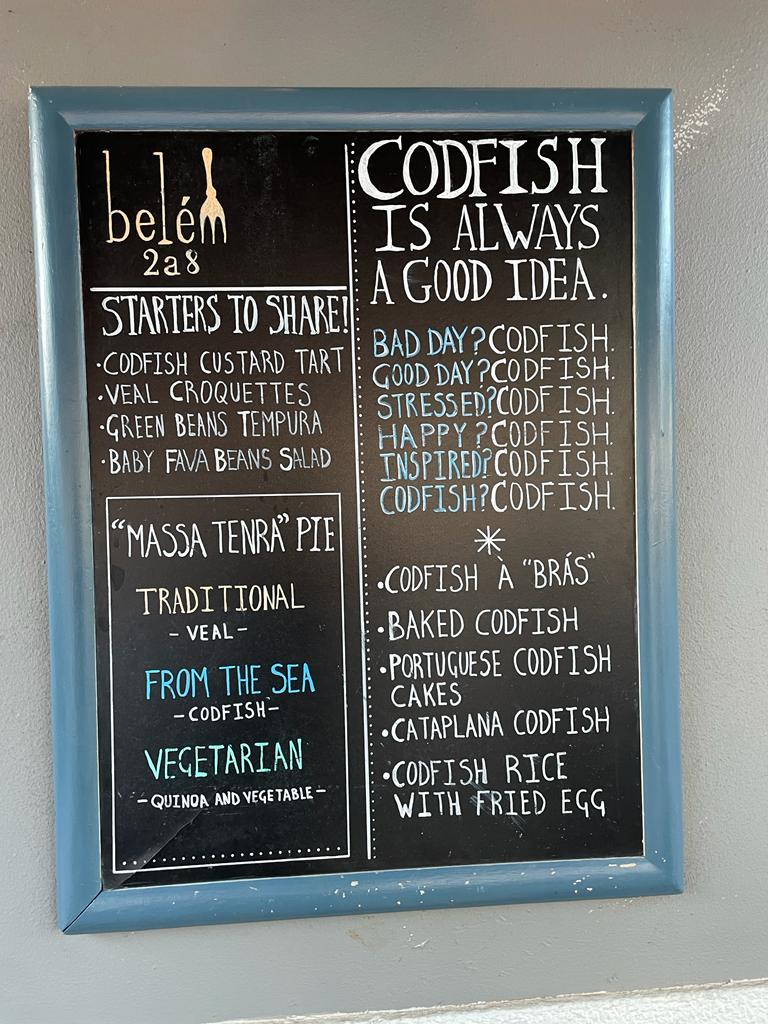 belém
2a8
STARTERS TO SHARE!
·CODFISH CUSTARD TART
·VEAL CROQUETTES
·GREEN BEANS TEMPURA
·BABY FAVA BEANS SALAD
"MASSA TENRA" PIE
TRADITIONAL
- VEAL -
FROM THE SEA
-CODFISH-
VEGETARIAN
- QUINOA AND VEGETABLE -
CODFISH
IS ALWAYS
A GOOD IDEA.
BAD DAY? CODFISH.
GOOD DAY? CODFISH.
STRESSED? CODFISH.
HAPPY? CODFISH.
INSPIRED? CODFISH.
CODFISH? CODFISH.
·CODFISH À "BRÁS"
·BAKED CODFISH
·PORTUGUESE CODFISH
CAKES
·CATAPLANA CODFISH
·CODFISH RICE
WITH FRIED EGG